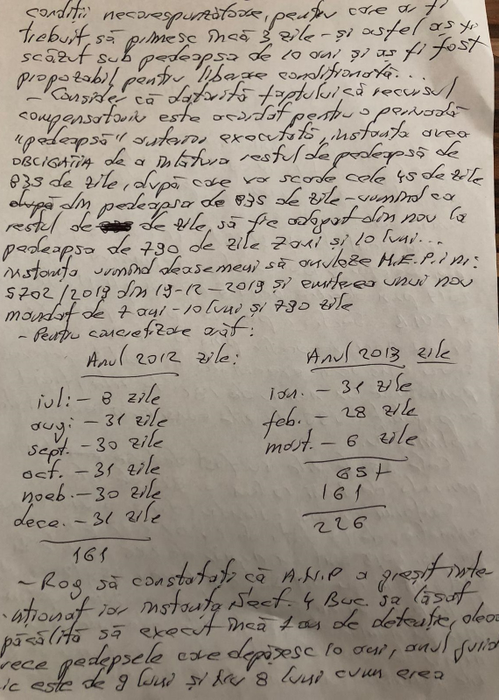 condiții necorespunzătoare, pentru care ar fi
trebuit să primesc încă 3 zile - și astfel aș fi
scăzut sub pedeapsa de 10 ani și aș fi fost
propozabil pentru liberare condiționată...
- Consider că datorită faptului că recursul
compensatoriu este acordat pentru o perioadă
"pedeapsă" anterior executată, instanța avea
OBLIGAȚIA de a înlătura restul de pedeapsă de
835 de zile, după care va scade cele 45 de zile
după din pedeapsa de 835 de zile - urmînd ca
restul de de zile, să fie adăugat din nou la
pedeapsa de 790 de zile 7 ani și 10 luni...
instanța urmînd deasemeni să anuleze M.E.P.i nr:
5702/2019 din 19-12-2019 și emiterea unui nou
mandat de 7 ani - 10 luni și 790 zile
- Pentru concretizare arăt:
Anul 2012 zile: Anul 2013 zile
iul: - 8 zile ian. - 31 zile
aug: - 31 zile feb. - 28 zile
sept. - 30 zile mart. - 6 zile
oct. - 31 zile 65+
noeb. - 30 zile 161
dece. - 31 zile 226
161
- Rog să constatați că A.N.P a greșit inte-
nționat iar instanța Sect. 4 Buc. sa lăsat
păcălită să execut încă 1 an de detenție, deoa
rece pedepsele care depășesc 10 ani, anul
ic este de 9 luni și nu 8 luni cum era